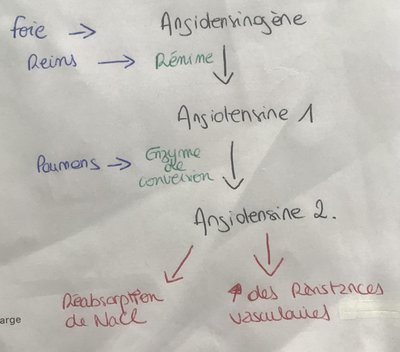 foie → Angidensinogène
Reins → Rénine
Angiotensine 1
Poumons → Enzyme
de
conversion
Angiotensine 2.
Réabsorption
de NaCl
↑ des Résistances
vasculaires
arge